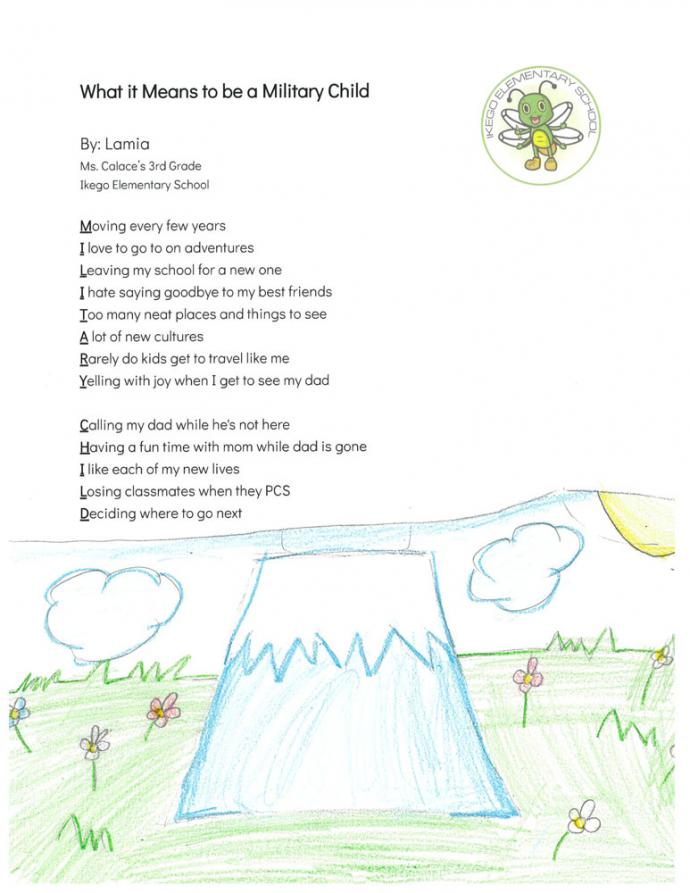 What it Means to be a Military Child
IKEGO ELEMENTARY SCHOOL
By: Lamia
Ms. Calace's 3rd Grade
Ikego Elementary School
Moving every few years
I love to go to on adventures
Leaving my school for a new one
I hate saying goodbye to my best friends
Too many neat places and things to see
A lot of new cultures
Rarely do kids get to travel like me
Yelling with joy when I get to see my dad
Calling my dad while he's not here
Having a fun time with mom while dad is gone
I like each of my new lives
Losing classmates when they PCS
Deciding where to go next